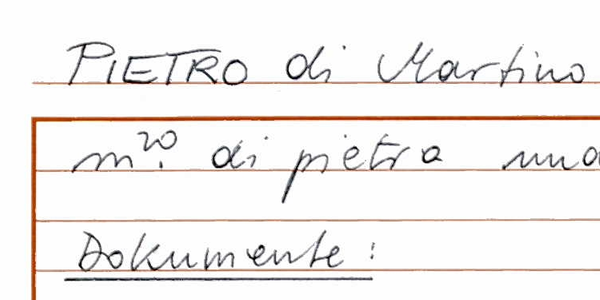 PIETRO di Martino
m.ro di pietra
Dokumente: